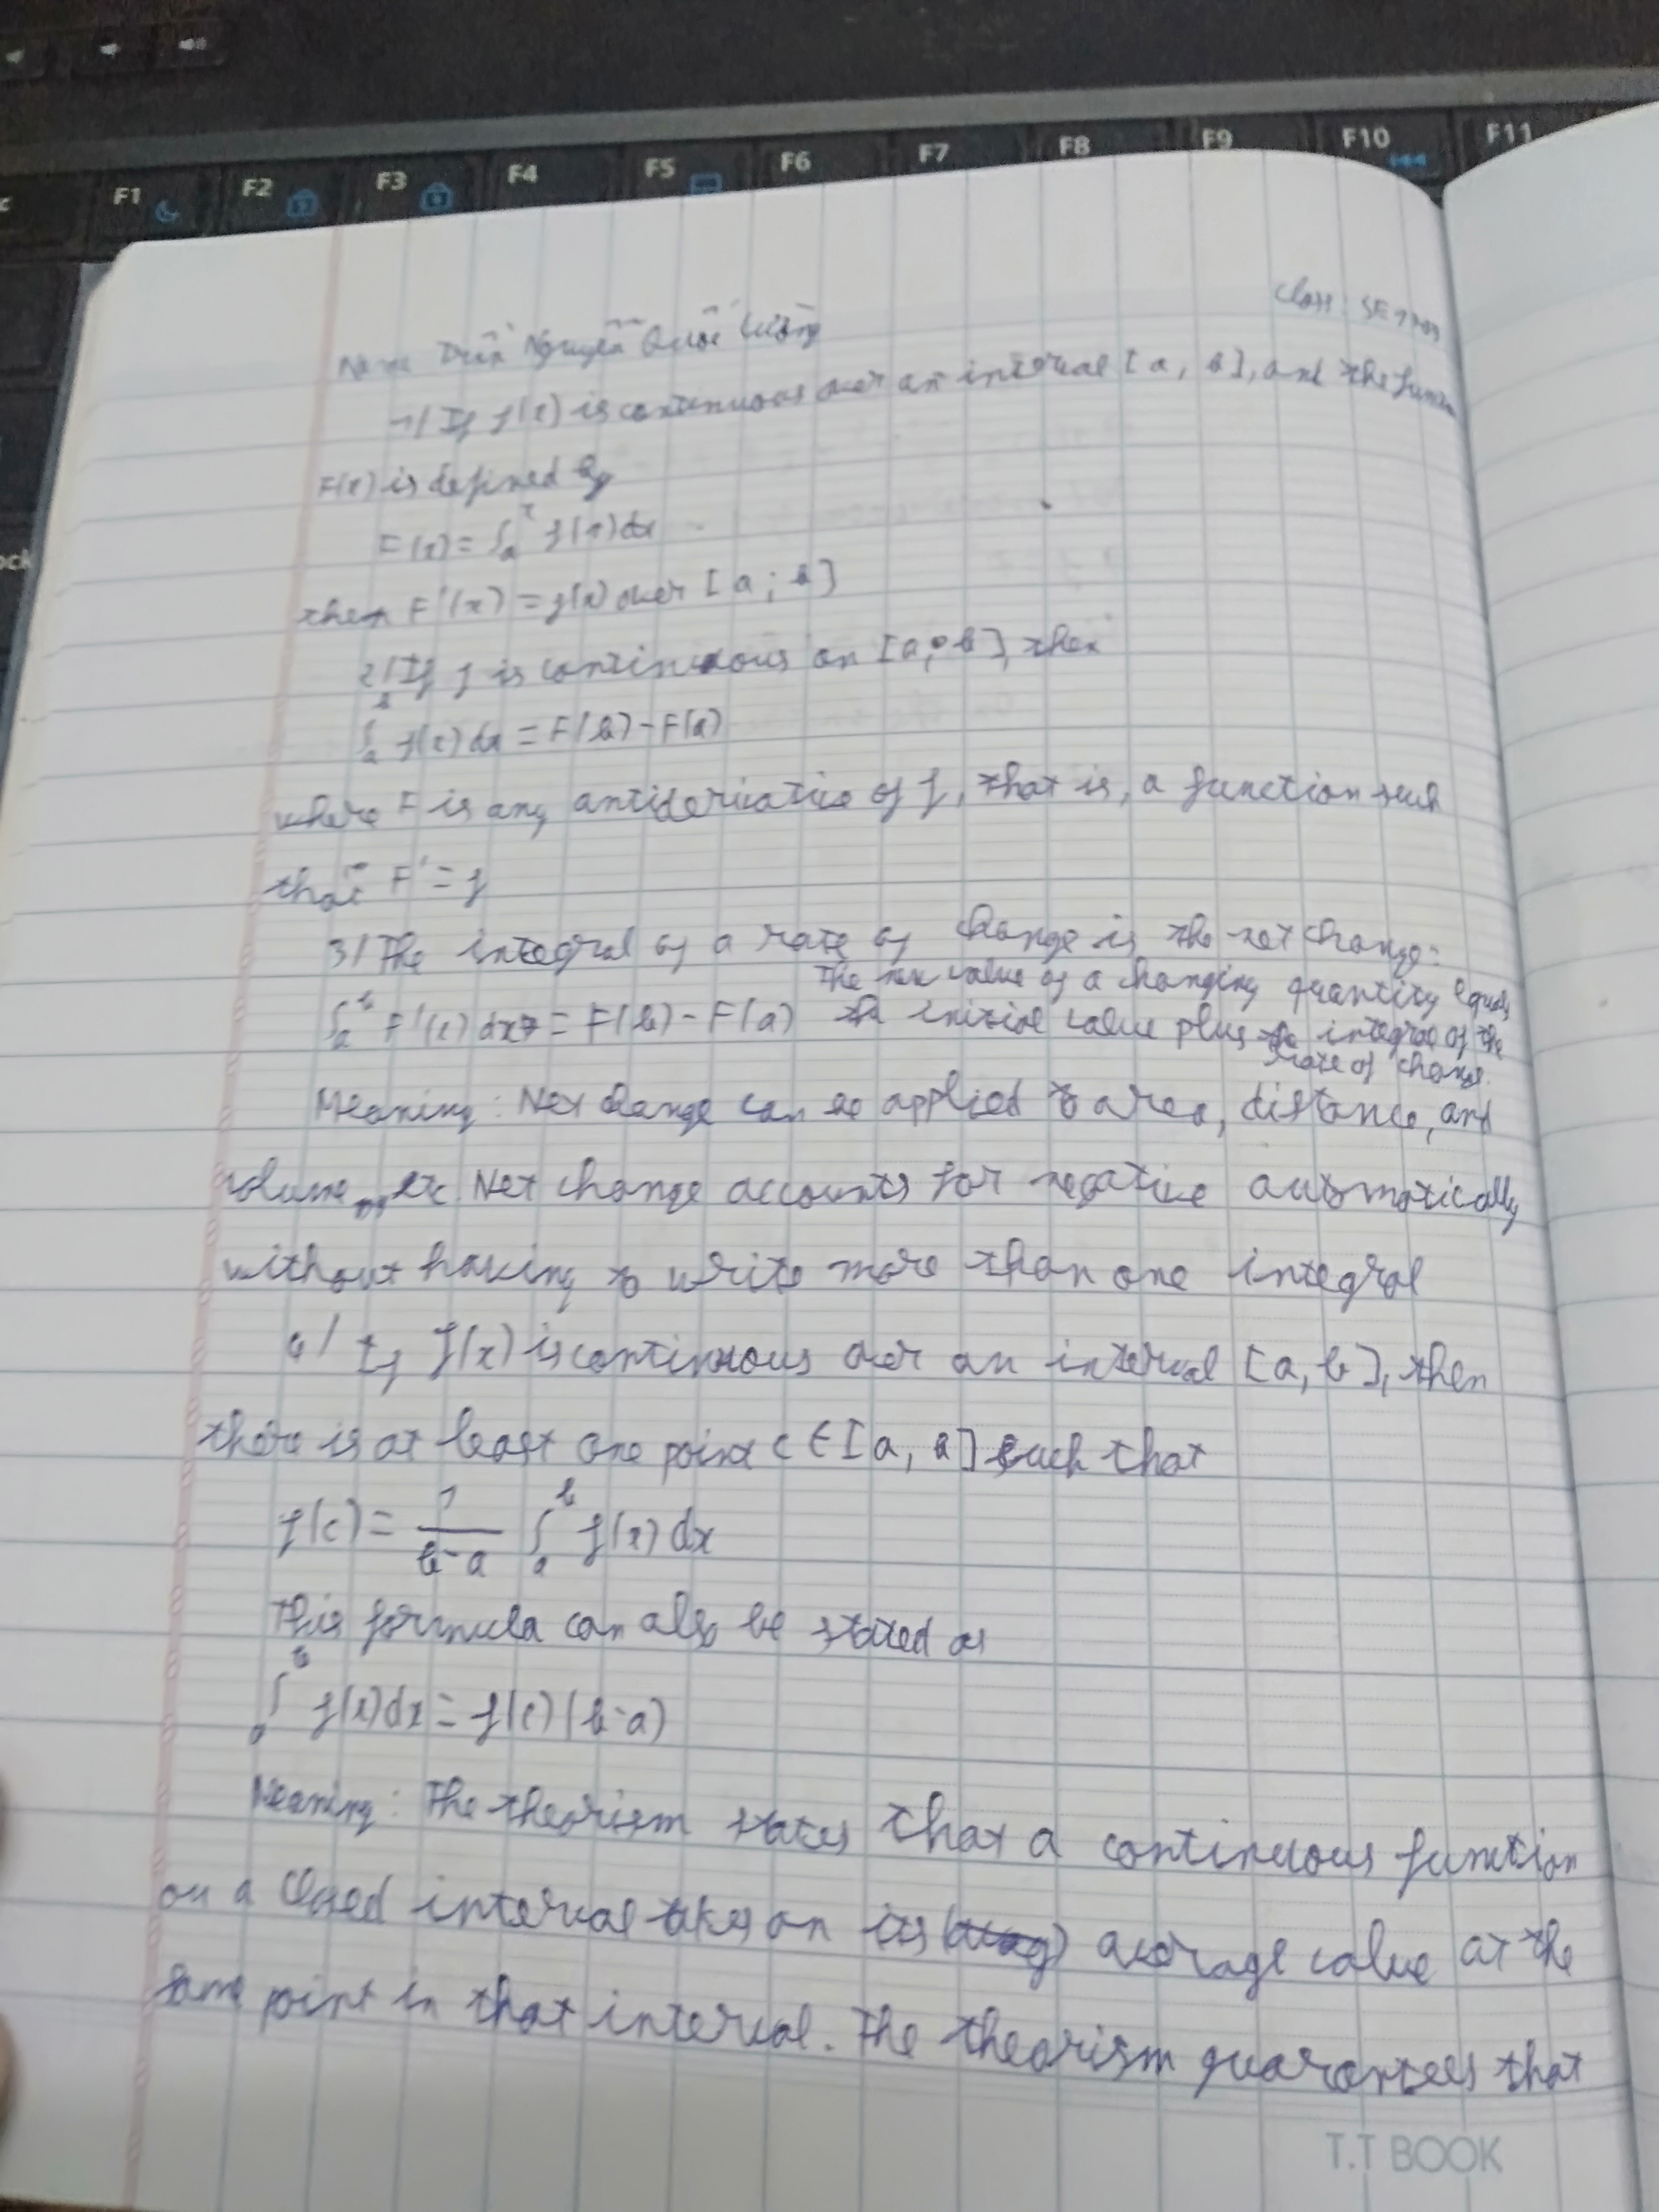 F1 F2 F3 F4 F5 F6 F7 F8 F9 F10 F11
Class: SE
Name Trần Nguyễn Quốc Cường
1/ If f(x) is continuous over an interval [a, b], and the
F(x) is defined by
F(x) = ∫ₐˣ f(x) dx
then F'(x) = f(x) over [a; b]
2/ If f is continuous on [a, b], then
∫ₐᵇ f(x) dx = F(b) - F(a)
where F is any antiderivative of f, that is, a function such
that F' = f
3/ The integral of a rate of change is the net change:
The new value of a changing quantity equals
∫ₐᵇ F'(x) dx = F(b) - F(a) the initial value plus the integral of the
rate of change.
Meaning: Net change can be applied to area, distance, and
volume, etc. Net change accounts for negative automatically
without having to write more than one integral
4/ If f(x) is continuous over an interval [a, b], then
there is at least one point c ∈ [a, b] such that
f(c) = 1/(b-a) ∫ₐᵇ f(x) dx
This formula can also be stated as
∫ₐᵇ f(x) dx = f(c) (b-a)
Meaning: The theorism states that a continuous function
on a closed interval takes on its average value at the
same point in that interval. The theorism guarantees that
T.T BOOK